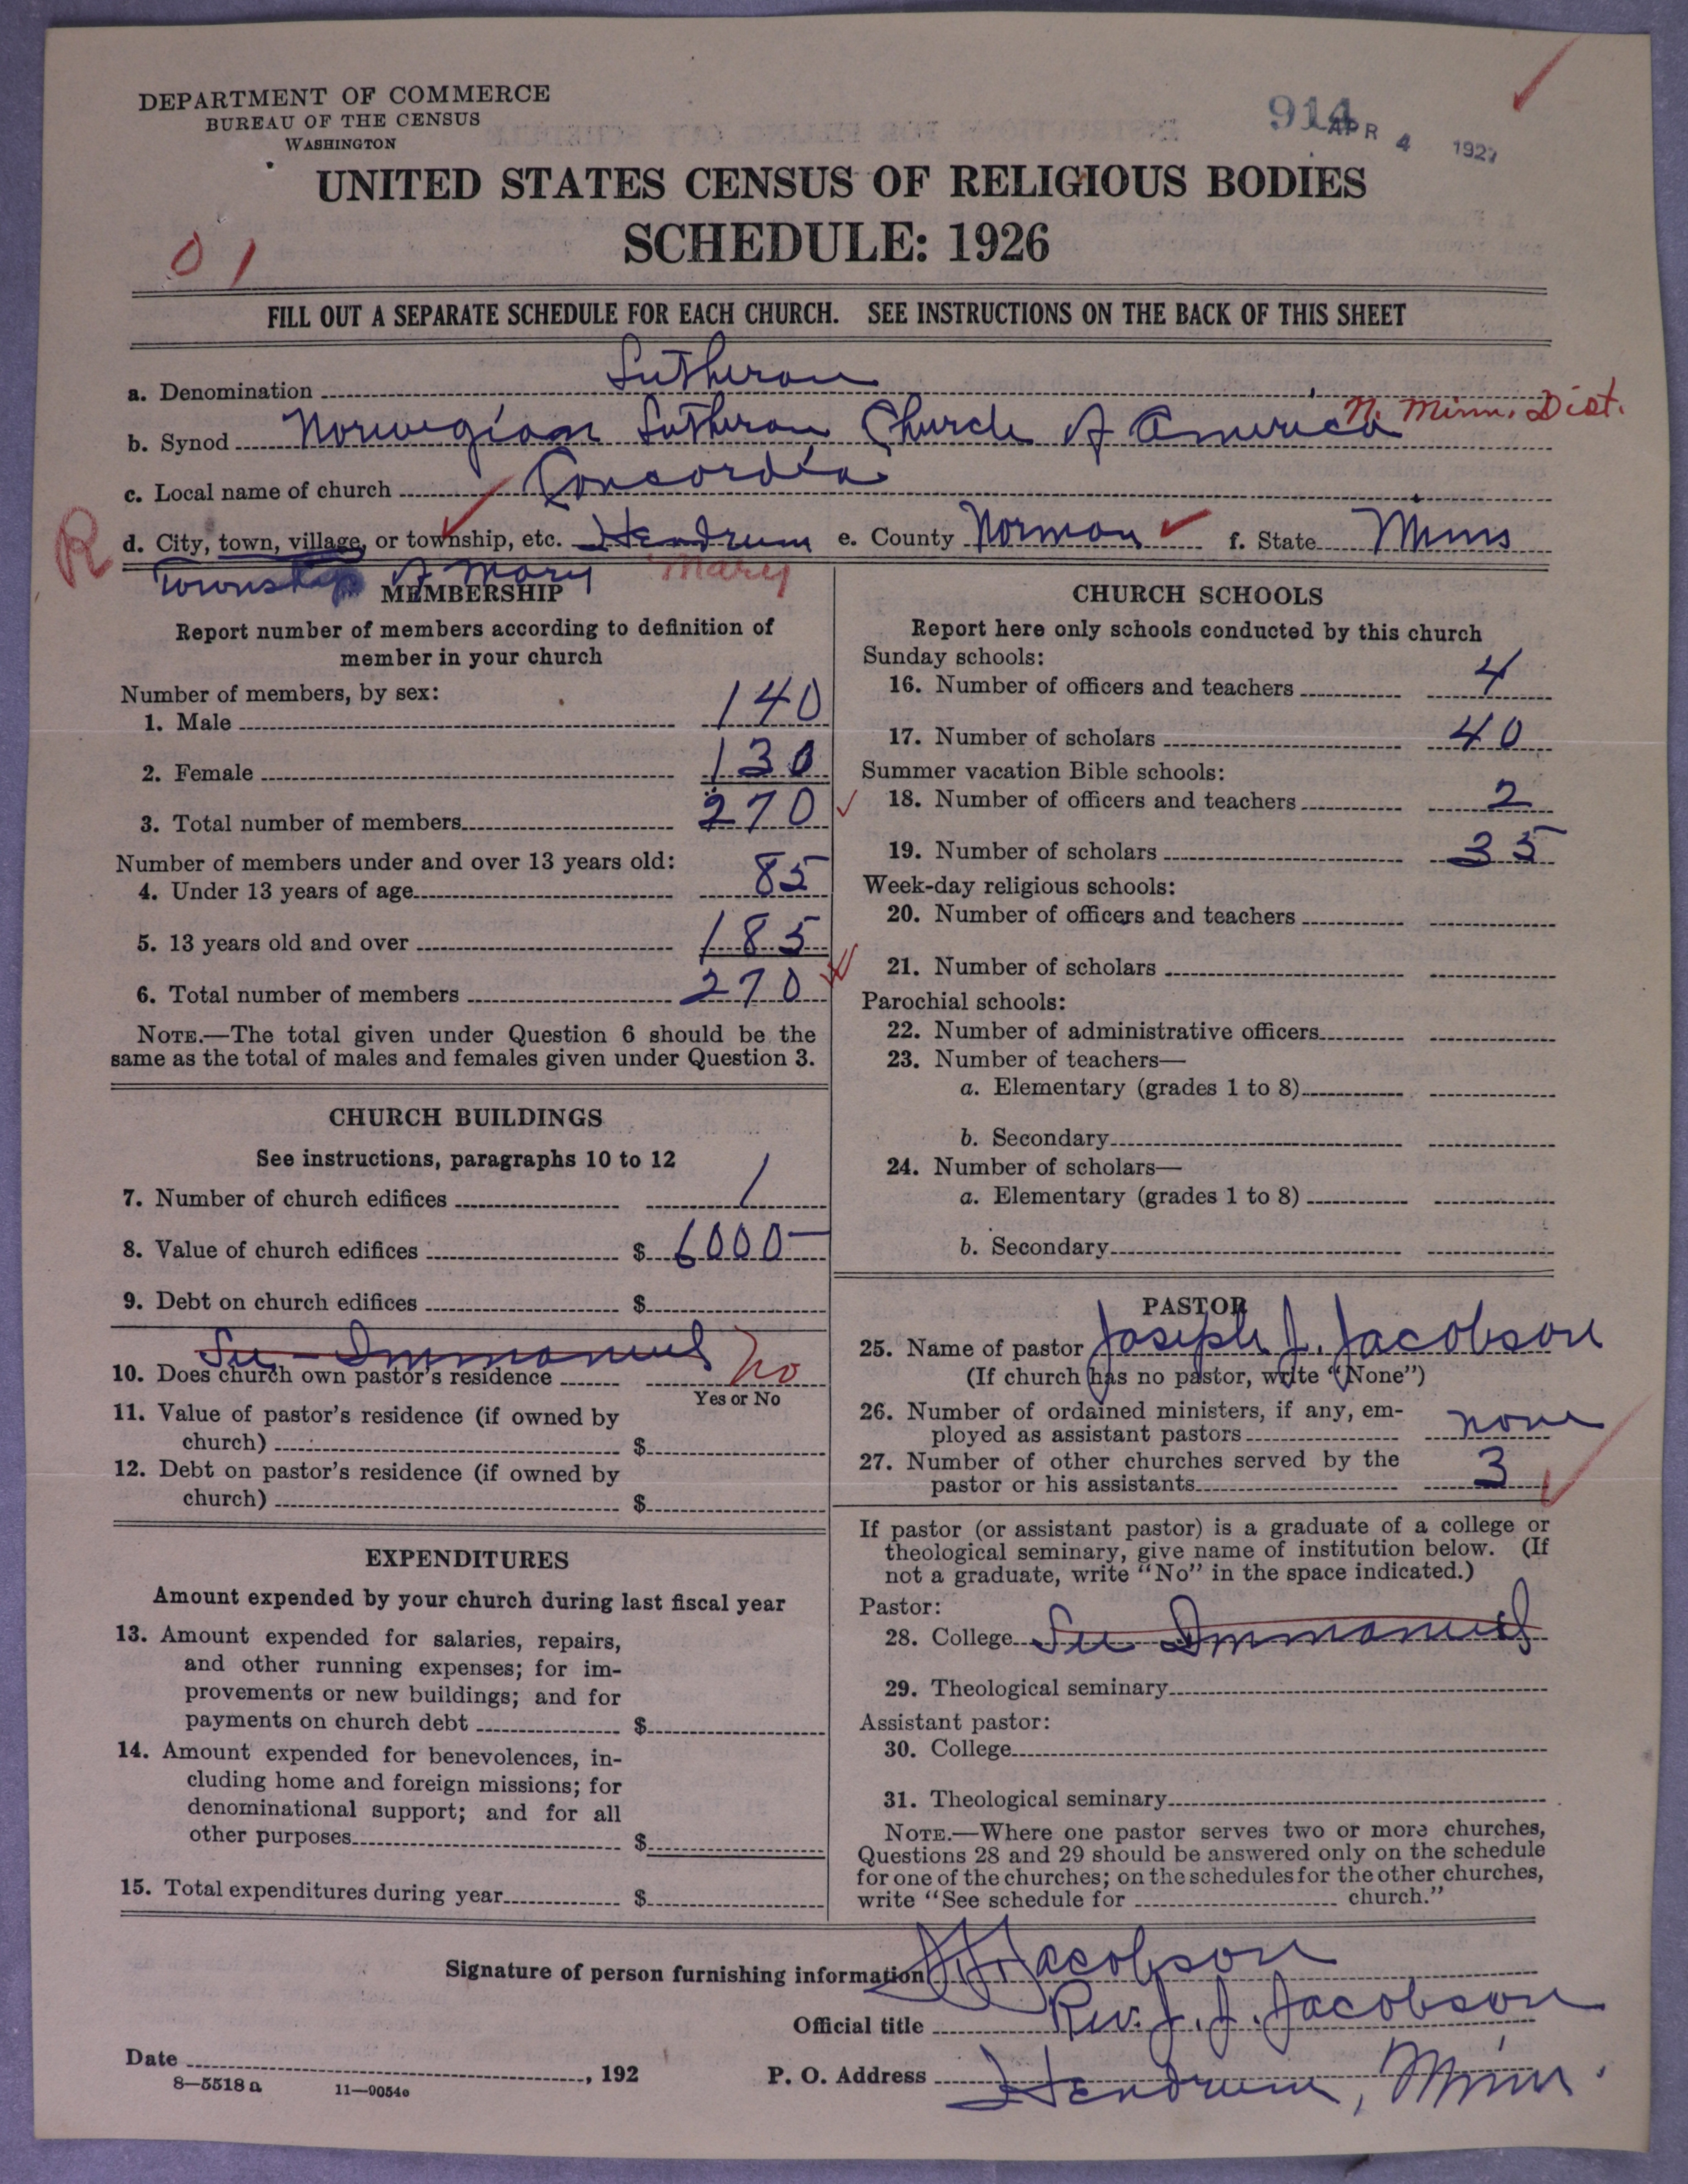 DEPARTMENT OF COMMERCE
BUREAU OF THE CENSUS
WASHINGTON
914
APR 4 1927
UNITED STATES CENSUS OF RELIGIOUS BODIES
SCHEDULE: 1926
01
FILL OUT A SEPARATE SCHEDULE FOR EACH CHURCH. SEE INSTRUCTIONS ON THE BACK OF THIS SHEET
a. Denomination Lutheran
b. Synod Norwegian Lutheran Church of America N. Minn. Dist.
c. Local name of church Concordia
R
d. City, town, village, or township, etc. Hendrum e. County Norman f. State Minn
Township of Mary Mary
MEMBERSHIP
Report number of members according to definition of
member in your church
Number of members, by sex:
1. Male 140
2. Female 130
3. Total number of members 270
Number of members under and over 13 years old:
4. Under 13 years of age 85
5. 13 years old and over 185
6. Total number of members 270
NOTE.—The total given under Question 6 should be the
same as the total of males and females given under Question 3.
CHURCH BUILDINGS
See instructions, paragraphs 10 to 12
7. Number of church edifices 1
8. Value of church edifices $ 6000-
9. Debt on church edifices $
See - Immanuel
10. Does church own pastor's residence No
Yes or No
11. Value of pastor's residence (if owned by
church) $
12. Debt on pastor's residence (if owned by
church) $
EXPENDITURES
Amount expended by your church during last fiscal year
13. Amount expended for salaries, repairs,
and other running expenses; for im-
provements or new buildings; and for
payments on church debt $
14. Amount expended for benevolences, in-
cluding home and foreign missions; for
denominational support; and for all
other purposes $
15. Total expenditures during year $
CHURCH SCHOOLS
Report here only schools conducted by this church
Sunday schools:
16. Number of officers and teachers 4
17. Number of scholars 40
Summer vacation Bible schools:
18. Number of officers and teachers 2
19. Number of scholars 35
Week-day religious schools:
20. Number of officers and teachers
21. Number of scholars
Parochial schools:
22. Number of administrative officers
23. Number of teachers—
a. Elementary (grades 1 to 8)
b. Secondary
24. Number of scholars—
a. Elementary (grades 1 to 8)
b. Secondary
PASTOR
25. Name of pastor Joseph J. Jacobson
(If church has no pastor, write "None")
26. Number of ordained ministers, if any, em-
ployed as assistant pastors none
27. Number of other churches served by the
pastor or his assistants 3
If pastor (or assistant pastor) is a graduate of a college or
theological seminary, give name of institution below. (If
not a graduate, write "No" in the space indicated.)
Pastor:
28. College See Immanuel
29. Theological seminary
Assistant pastor:
30. College
31. Theological seminary
NOTE.—Where one pastor serves two or more churches,
Questions 28 and 29 should be answered only on the schedule
for one of the churches; on the schedules for the other churches,
write "See schedule for church."
Signature of person furnishing information J J Jacobson
Official title Rev. J. J. Jacobson
Date , 192
P. O. Address Hendrum, Minn.
8—5518 a 11—9054e